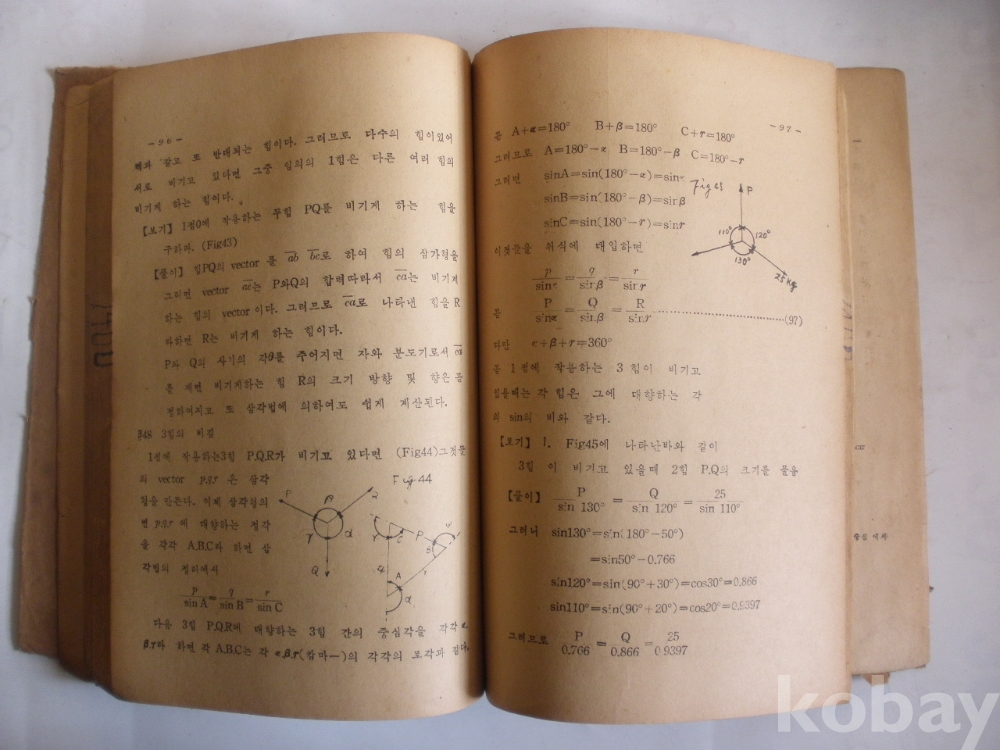 -96-
크기와 방향은 또 반대되는 힘이다. 그러므로 다수의 힘이있어
서로 비기고 있다면 그중 임의의 1힘은 다른 여러 힘의
비기게 하는 힘이다.
【보기】 1점0에 작용하는 두힘 PQ를 비기게 하는 힘을
구하라. (Fig43)
【풀이】 힘PQ의 vector 를 ab bc로 하여 힘의 삼각형을
그리면 vector ac는 P와Q의 합력따라서 ca는 비기게
하는 힘의 vector이다. 그러므로 ca로 나타낸 힘을R
라하면 R는 비기게 하는 힘이다.
P와 Q의 사기의 각θ를 주어지면 자와 분도기로서 ca
를 재면 비기게하는 힘 R의 크기 방향 및 향은
정하여지고 또 삼각법에 의하여도 쉽게 계산된다.
§48 3힘의 비김
1점에 작용하는3힘 P.Q.R가 비기고 있다면 (Fig44)그것들
의 vector p.q.r 은 삼각
형을 만든다. 이제 삼각형의
변 p.q.r 에 대향하는 정각
을 각각 A.B.C라 하면 삼
각형의 정리에서
Fig 44
P R Q α β γ
A
p/sin A = q/sin B = r/sin C
다음 3힘 P.Q.R에 대향하는 3힘 간의 중심각을 각각 α.
β.r라 하면 각 A.B.C는 각 α.β.r(감마ー)의 각각의 보각과 같다.
-97-
즉 A+α=180° B+β=180° C+r=180°
그러므로 A=180°-α B=180°-β C=180°-r
그러면 sinA=sin(180°-α)=sinα
sinB=sin(180°-β)=sinβ
sinC=sin(180°-r)=sinr
Fig 45
P
110° 120°
130°
25kg
이것들을 위식에 대입하면
p/sinα = q/sinβ = r/sin r
즉 P/sinα = Q/sinβ = R/sin r ……………(97)
다만 α+β+r=360°
즉 1점에 작용하는 3힘이 비기고
있을때는 각 힘은 그에 대향하는 각
의 sin의 비와 같다.
【보기】 1. Fig45에 나타난바와 같이
3힘 이 비기고 있을때 2힘 P.Q의 크기를 물음
【풀이】 P/sin 130° = Q/sin 120° = 25/sin 110°
그러니 sin130°=sin(180°-50°)
=sin50°=0.766
sin120°=sin(90°+30°)=cos30°=0.866
sin110°=sin(90°+20°)=cos20°=0.9397
그러므로 P/0.766 = Q/0.866 = 25/0.9397
kobay